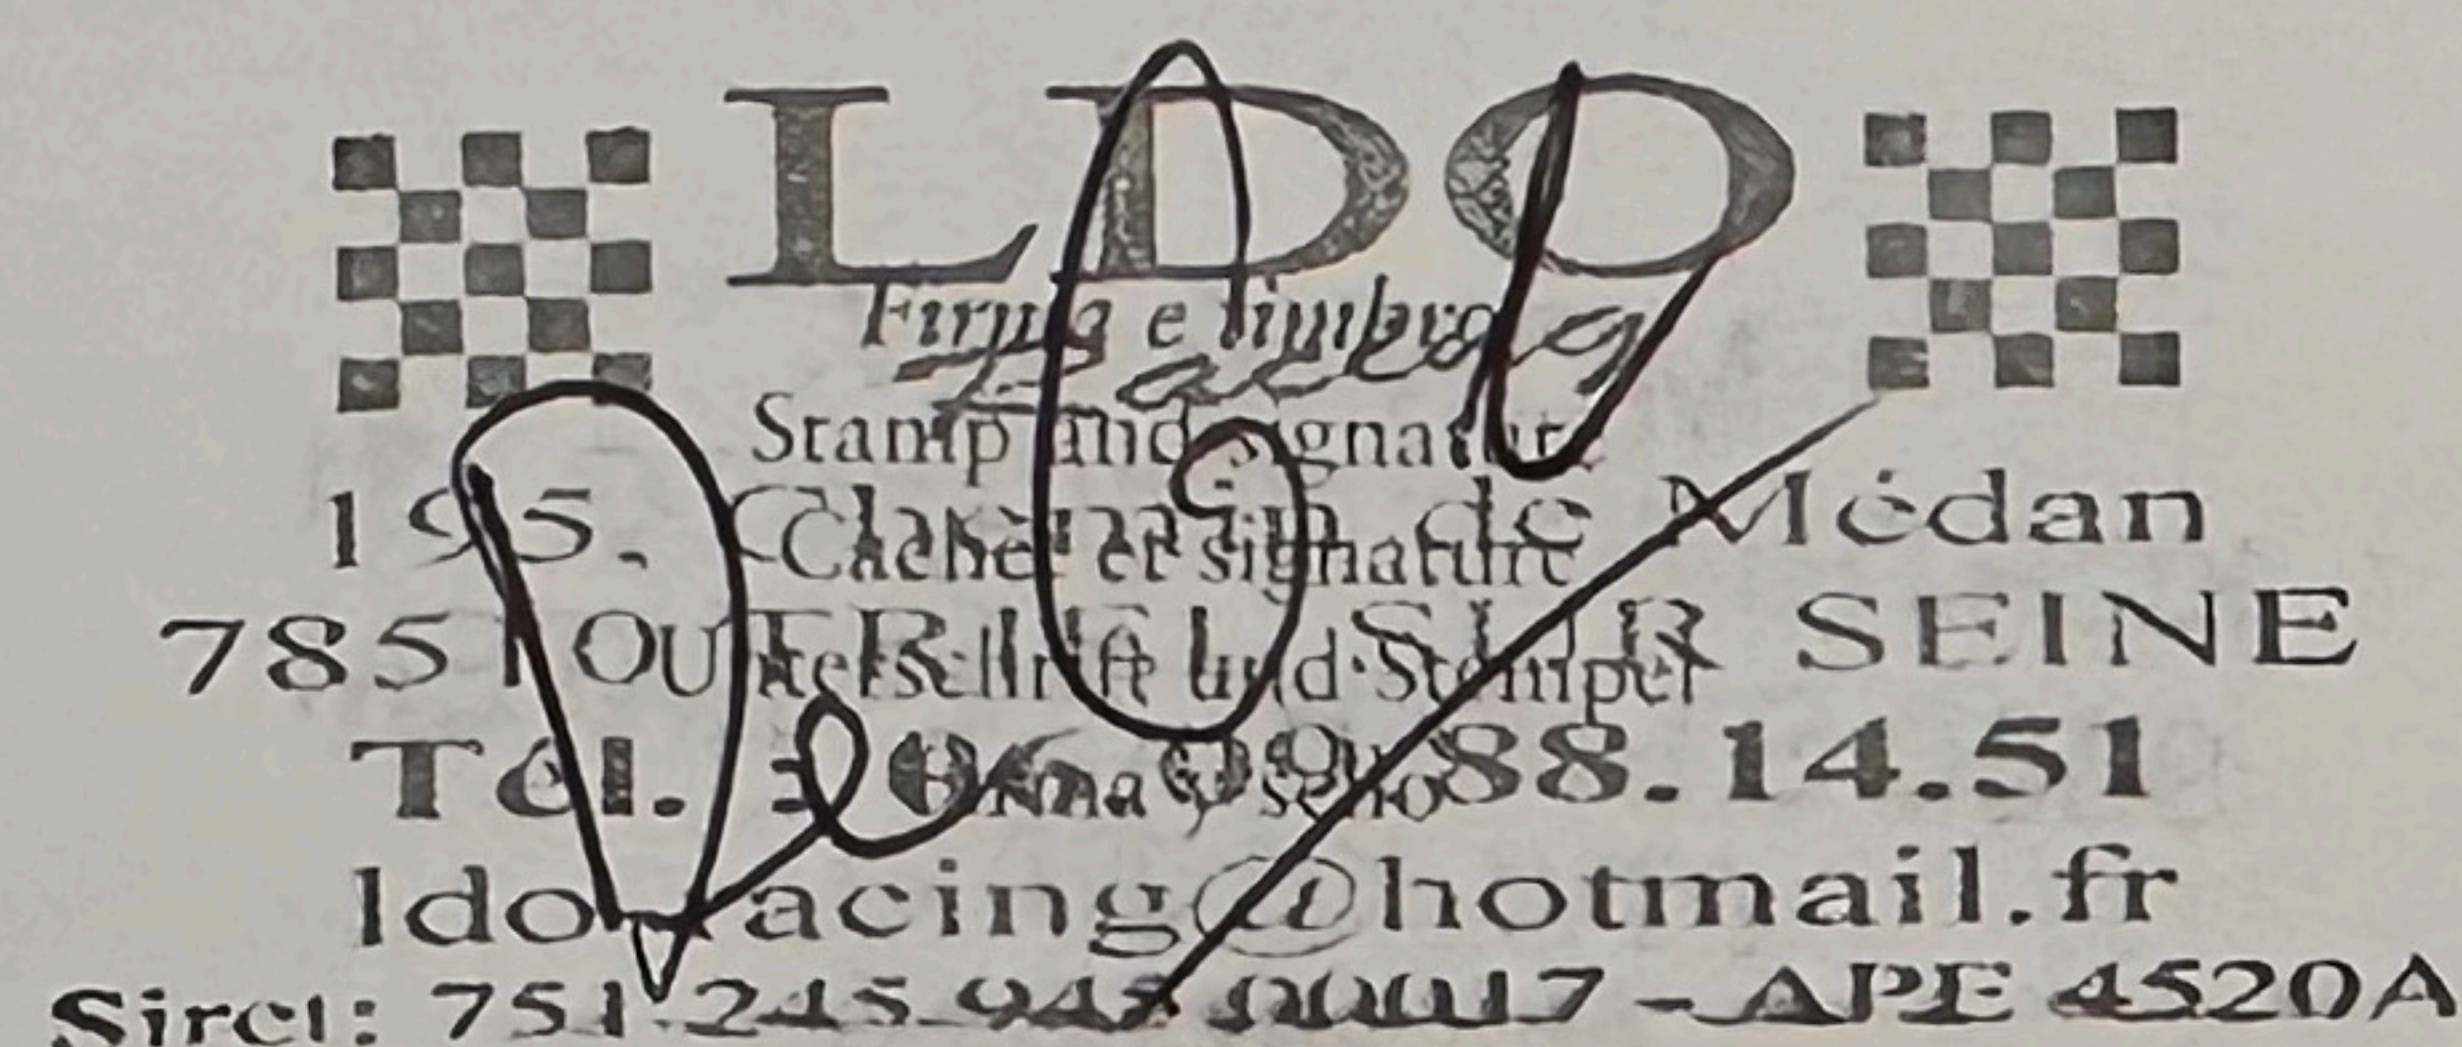 LDO
Firma e timbro
Stamp and signature
195, Chemin de Médan
Cachet et signature
78510 TRIEL SUR SEINE
Unterschrift und Stempel
Tél. : 88.14.51
Firma y sello
acing@hotmail.fr
Siret: 751 245 00017 - APE 4520A